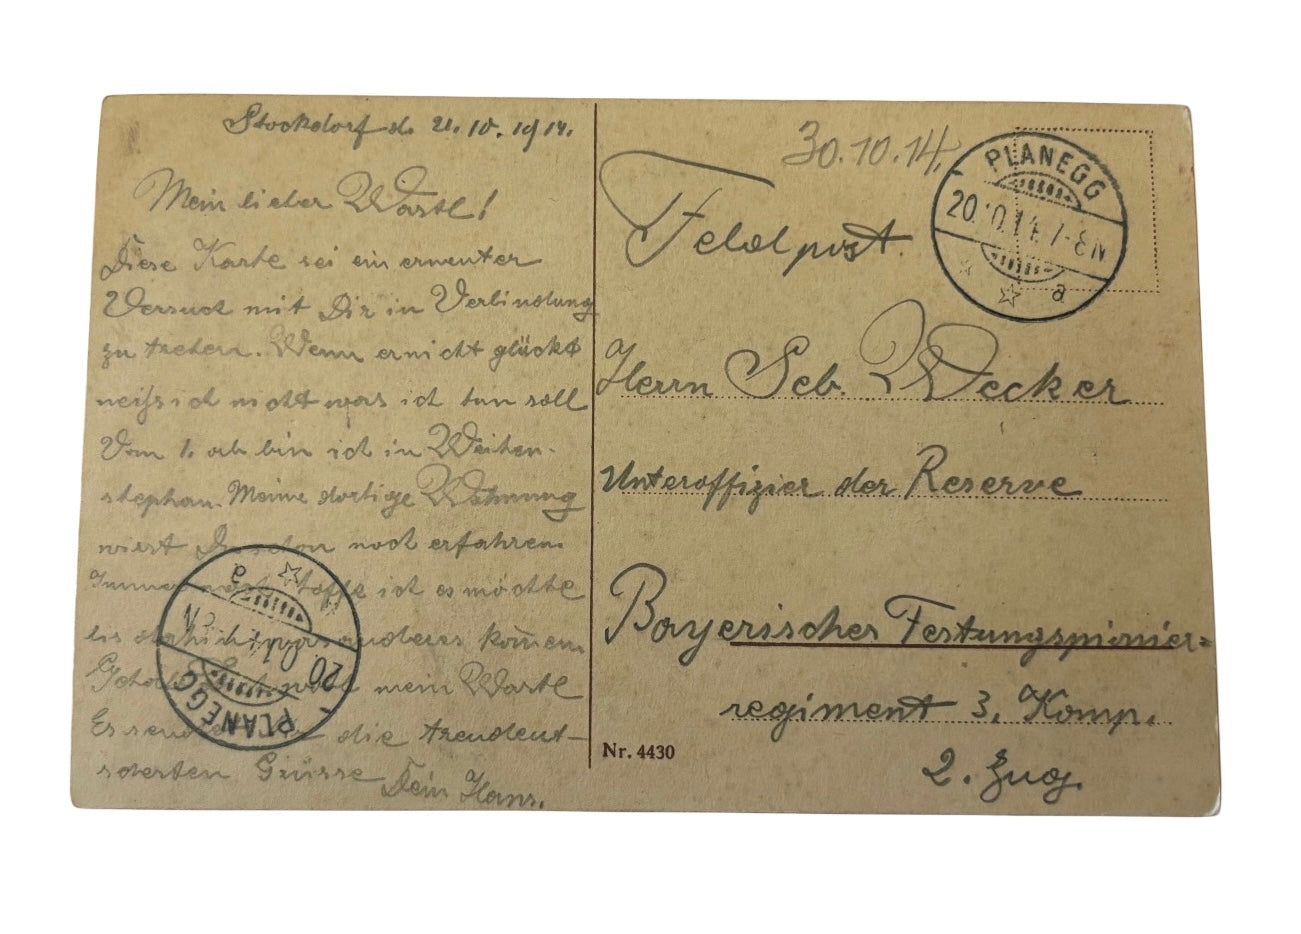 Stockdorf d. 20.10.1914.
Mein lieber Wastl!
Diese Karte sei ein erneuter
Versuch mit Dir in Verbindung
zu treten. Wenn er nicht glückt
weiß ich nicht was ich tun soll
Vom 1. ab bin ich in Weihen-
stephan. Meine dortige Wohnung
wirst Du schon noch erfahren.
Immer noch hoffe ich es möchte
bis dahin anderes kom̄en.
mein Wastl
Es sendet die treudeut-
schesten Grüsse
Dein Hans.
30.10.14.
PLANEGG
20.10.14. 7-8 N
a
Feldpost.
Herrn Seb. Wecker
Unteroffizier der Reserve
Bayerisches Festungspionier-
regiment 3. Komp.
2. Zug.
Nr. 4430
PLANEGG
20.
N
a